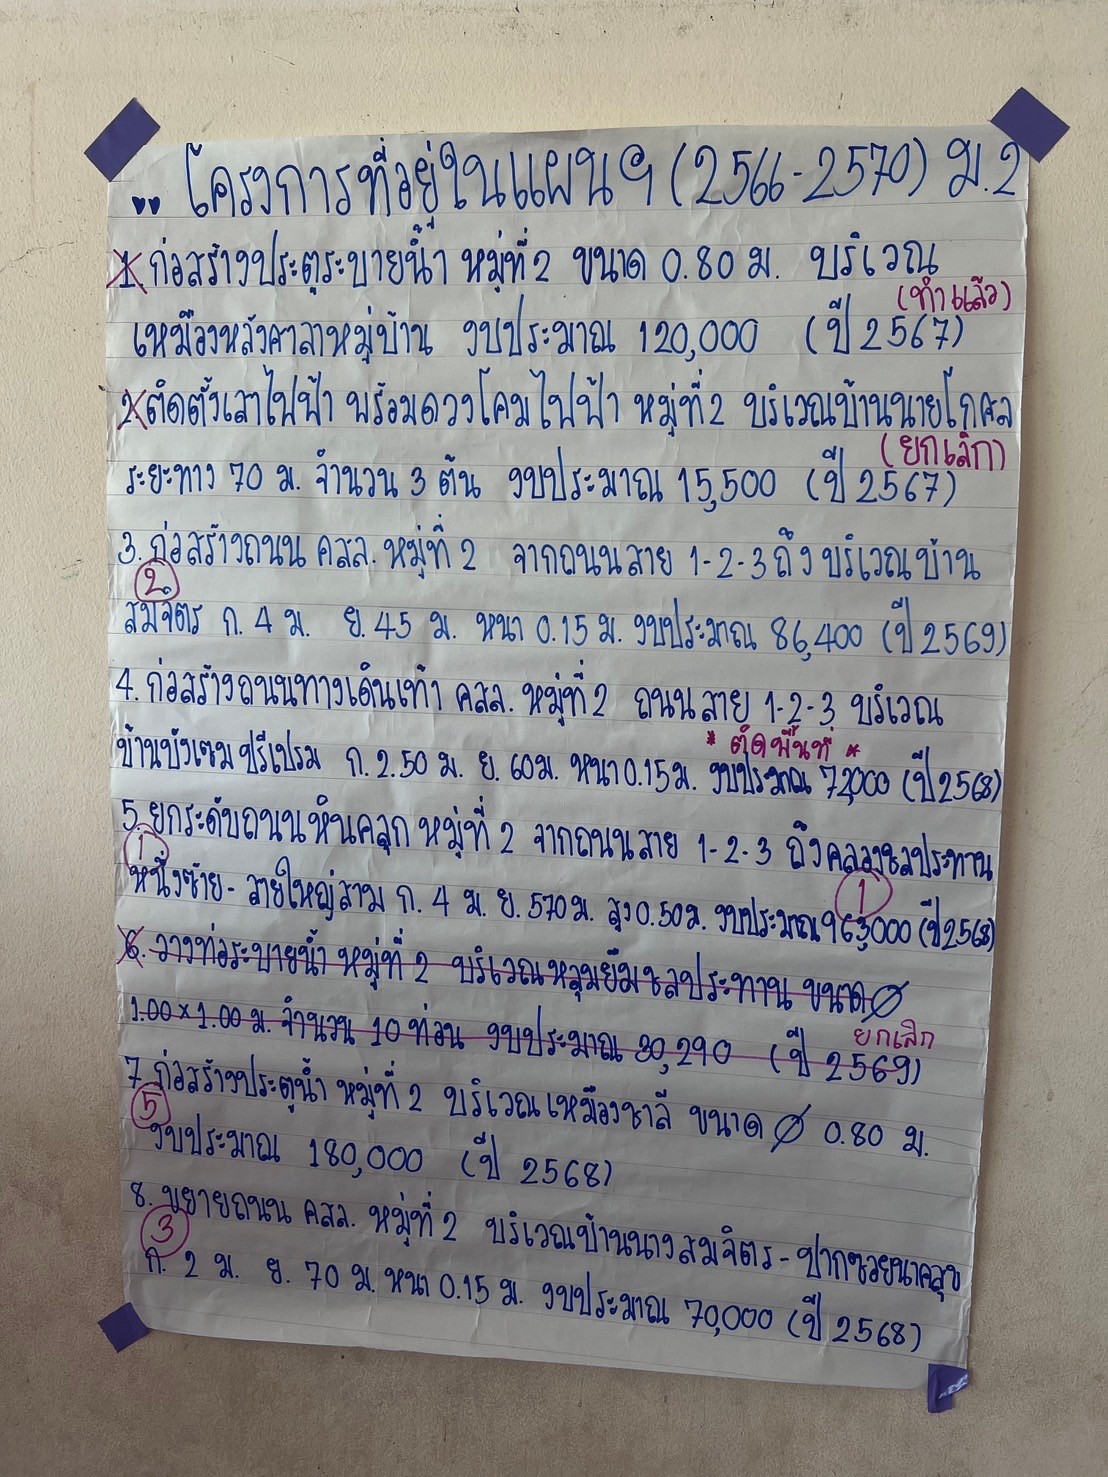 .. โครงการที่อยู่ในแผนฯ (2566-2570) ม.2
1. ก่อสร้างประตูระบายน้ำ หมู่ที่ 2 ขนาด 0.80 ม. บริเวณ
(ทำแล้ว)
เหมืองหลังศาลาหมู่บ้าน งบประมาณ 120,000 (ปี 2567)
2. ติดตั้งเสาไฟฟ้า พร้อมดวงโคมไฟฟ้า หมู่ที่ 2 บริเวณบ้านนายโกศล
(ยกเลิก)
ระยะทาง 70 ม. จำนวน 3 ต้น งบประมาณ 15,500 (ปี 2567)
3. ก่อสร้างถนน คสล. หมู่ที่ 2 จากถนนสาย 1-2-3 ถึง บริเวณบ้าน
2
สมจิตร ก. 4 ม. ย. 45 ม. หนา 0.15 ม. งบประมาณ 86,400 (ปี 2569)
4. ก่อสร้างถนนทางเดินเท้า คสล. หมู่ที่ 2 ถนนสาย 1-2-3 บริเวณ
* ติดพื้นที่ *
บ้านบังเซม ปรีเปรม ก. 2.50 ม. ย. 60 ม. หนา 0.15 ม. งบประมาณ 72,000 (ปี 2568)
5. ยกระดับถนนหินคลุก หมู่ที่ 2 จากถนนสาย 1-2-3 ถึงคลองชลประทาน
1
หนึ่งซ้าย - สายใหญ่สาม ก. 4 ม. ย. 570 ม. สูง 0.50 ม. งบประมาณ 963,000 (ปี 2568)
1
6. วางท่อระบายน้ำ หมู่ที่ 2 บริเวณหลุมยืมชลประทาน ขนาด Ø
ยกเลิก
1.00 × 1.00 ม. จำนวน 10 ท่อน งบประมาณ 30,290 (ปี 2569)
7. ก่อสร้างประตูน้ำ หมู่ที่ 2 บริเวณเหมืองชาลี ขนาด Ø 0.80 ม.
5
งบประมาณ 180,000 (ปี 2568)
8. ขยายถนน คสล. หมู่ที่ 2 บริเวณบ้านนางสมจิตร - ปากซอยนาคสุข
3
ก. 2 ม. ย. 70 ม. หนา 0.15 ม. งบประมาณ 70,000 (ปี 2568)